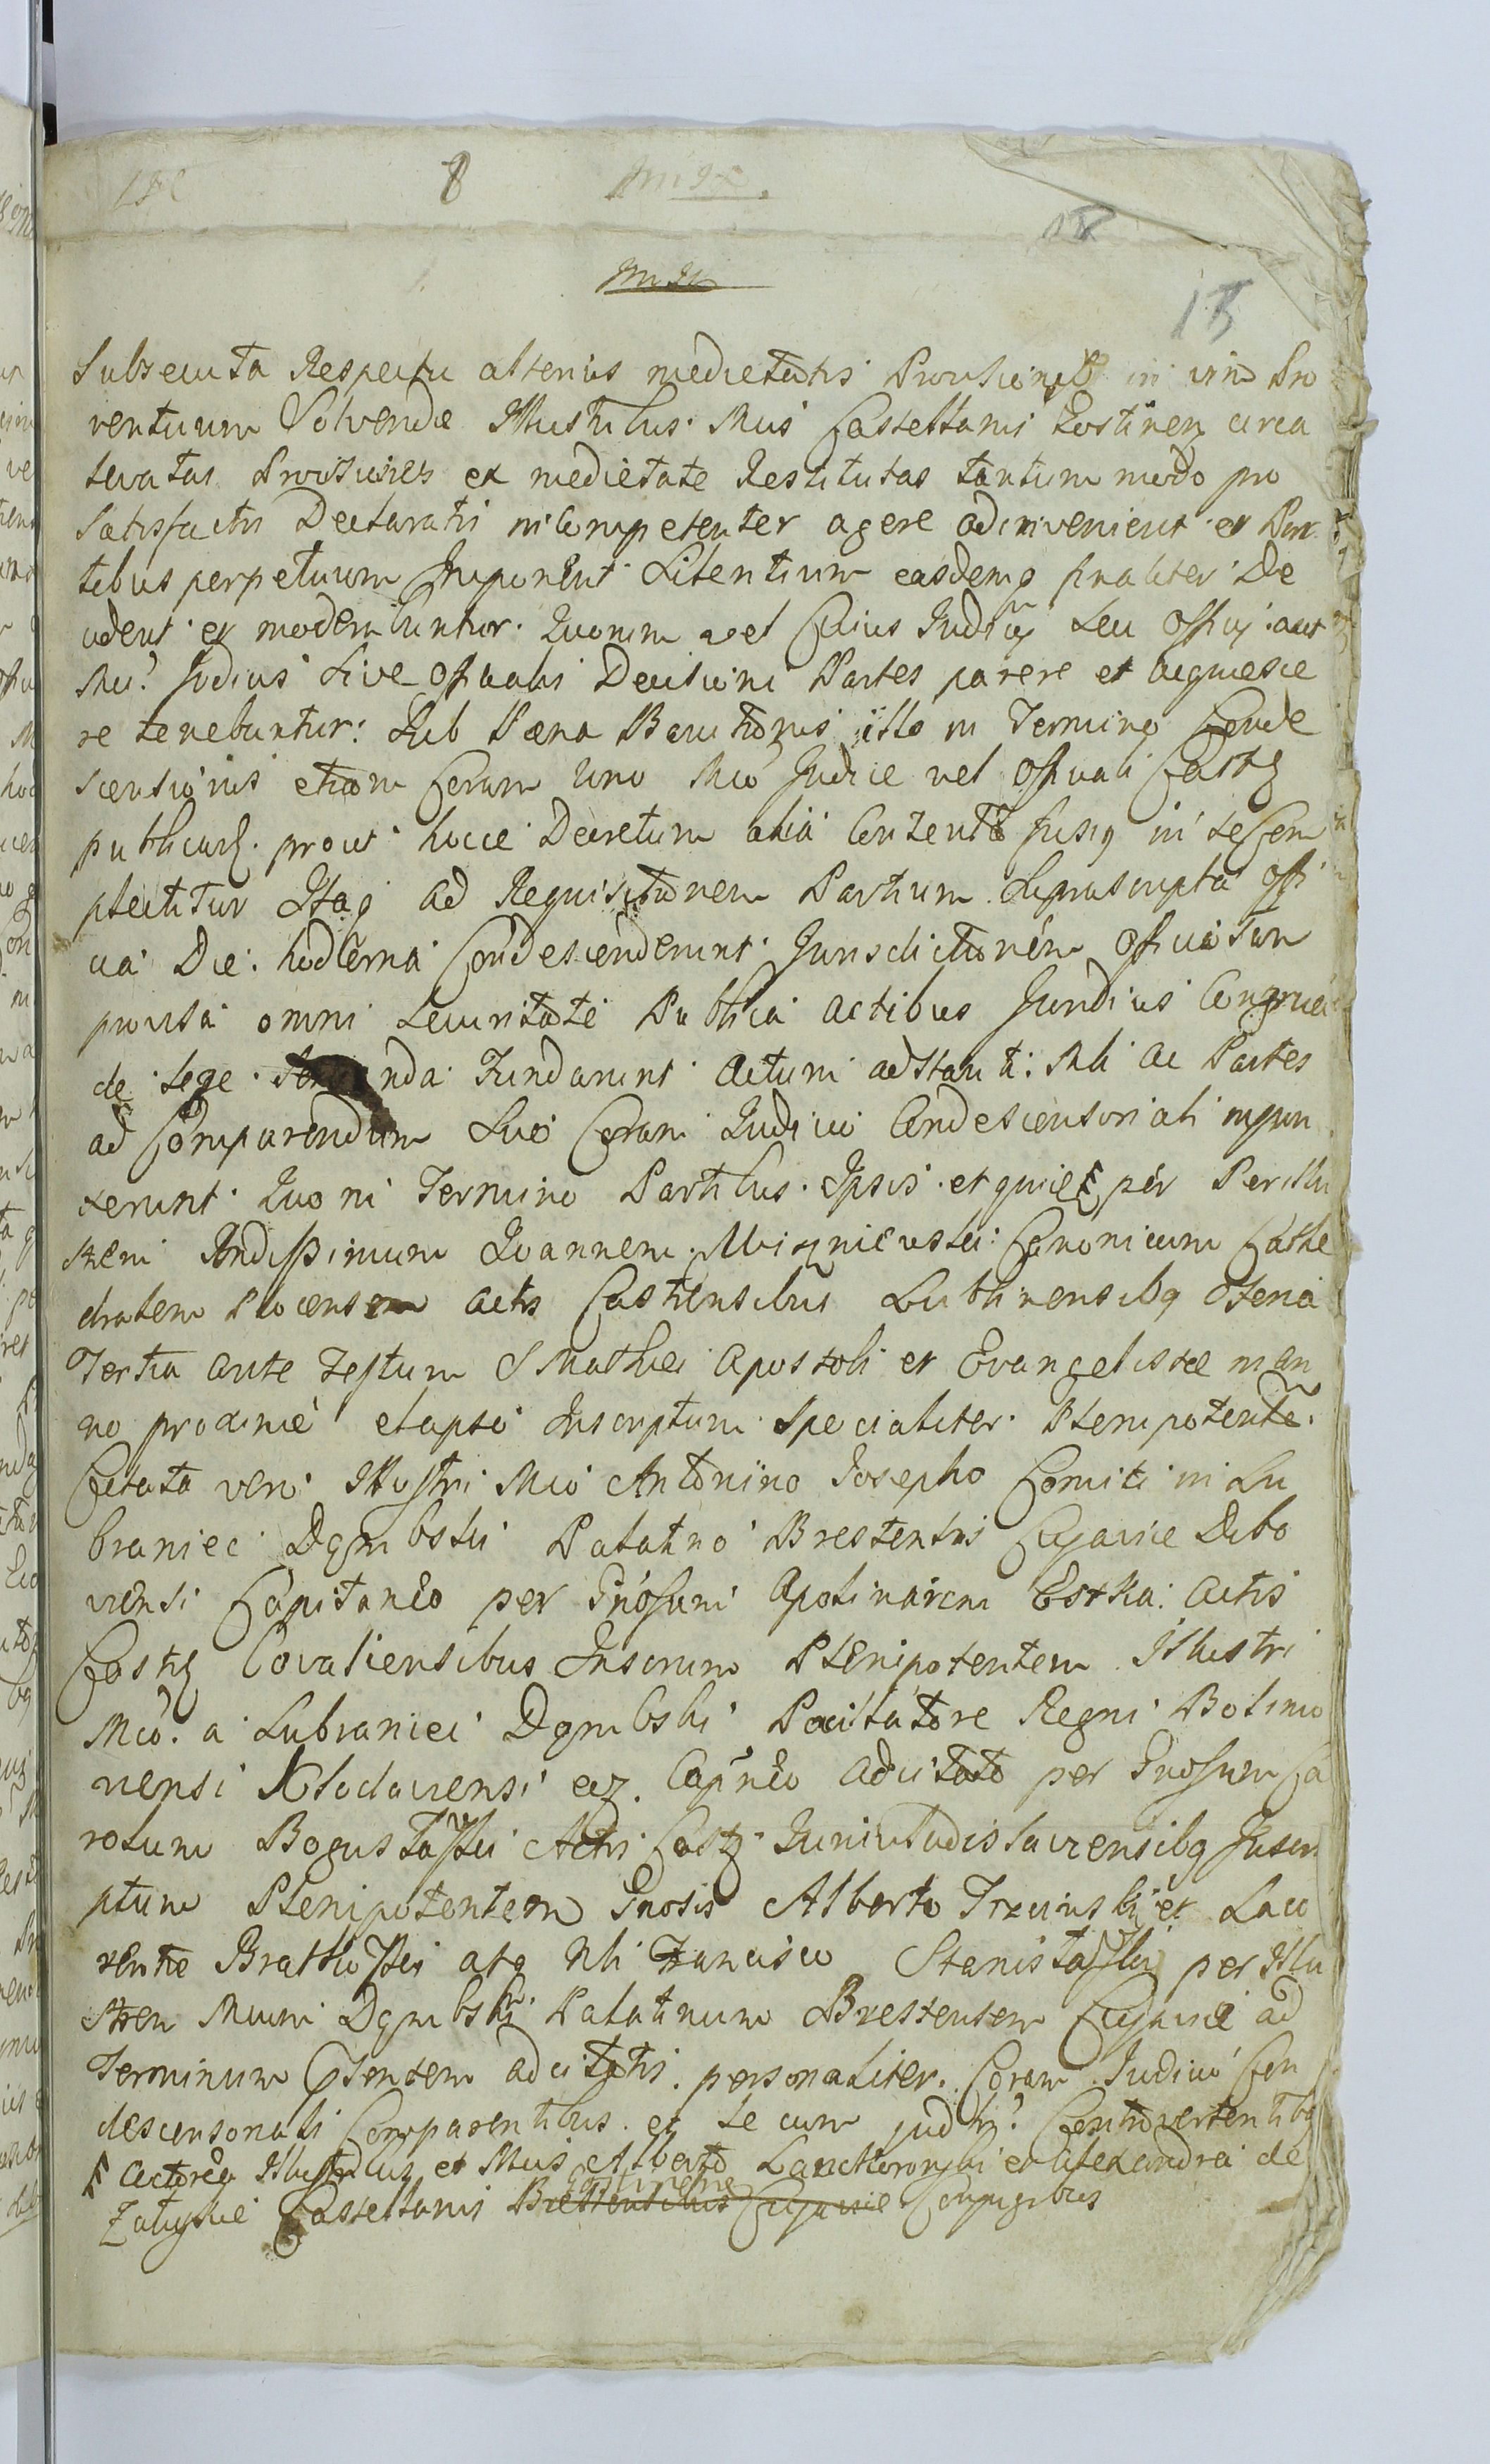 8
18
15
Subsecuta Respectu alterius medietatis Provisionis in vim Pro
ventuum Solvendae Illustribus Mcis Castellanis Gostinen circa
levatas Provisiones ex medietate Restitutas tantum modo pro
Satisfactis Declaratis incompetenter agere adinvenient et Par
tibus perpetuum Imponent Silentium easdemq finaliter De
cident et moderabuntur. Quorum vel Cuius Judicij seu Officij aut
Mci Judicis Sive Officialis Decisioni Partes parere et acquiesce
re tenebuntur: Sub Paena Bannitionis illo in Termino Conde
scensionis etiam Coram uno Mco Judice vel Officiali Castr
publicand. prout hocce Decretum alia Contenta fusiq in se Com
plectitur Itaq ad Requisitionem Partium Suprascripta Offi
cia Die hodierna Condescenderunt Jurisdictionem Officiosam
provisa omni Securitate Publica actibus Juridicis Congrua
de Lege nda Fundarunt actum adstanti: Mli ac Partes
ad Comparendum Suo Coram Judicio Condescensoriali injun
xerunt Quo in Termino Partibus Ipsis et quidem per Perillu
strem Rndissimum Joannem Canonicum Cathe
dralem Plocensem actis Castrensibus Lublinensibq Feria
Tertia ante Festum S Mathei Apostoli et Evangelistae in an
no proxime elapso Inscriptum Specialiter Plenipotente.
Citata vero Illustri Mco Antonino Josepho Comiti in Lu
braniec Dąmbski Palatino Brestensi Cujaviae Dibo
viensi Capitaneo per Gnosum Apolinarem Estka actis
Castr Covaliensibus Inscrum Plenipotentem Illustri
Mco. a Lubraniec Dąmbski Pocillatore Regni Bolimo
viensi Klodaviensi eq. Capneo adcitato per Gnosum Ca
rolum Boguslawski Actis Castr Juniuladislaviensibq Inscri
ptum Plenipotentem Gnosis Alberto Trzcinski et Law
rentio Bratkowski atq Nli Francisco Stanislawski per Illu
strem Mcum Dąmbski Palatinum Brestensem Cujaviae ad
Terminum Psentem adcitatis personaliter Coram Judicio Con
descensoriali Comparentibus et se cum judtr Controvertentibq
Actorea Illustribus et Mcis Alberto Lanckoronski et Alexandra de
Zaluskie Castellanis Brestensibus Cujaviae Conjugibus
Gostinens